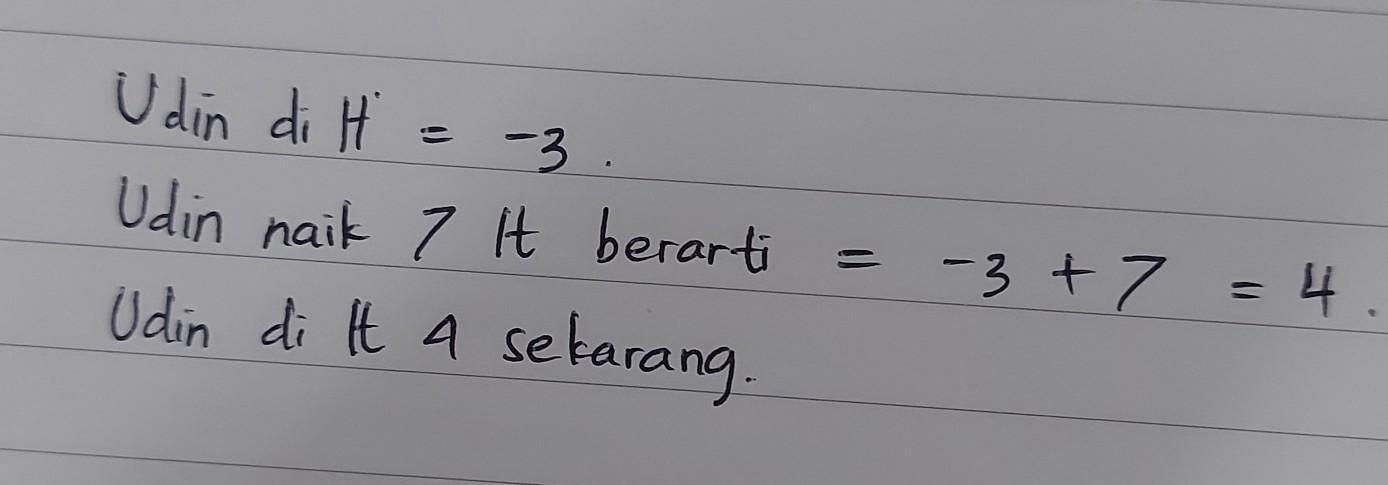 Udin di lt = -3.
Udin naik 7 lt berarti = -3 + 7 = 4.
Udin di lt 4 sekarang.